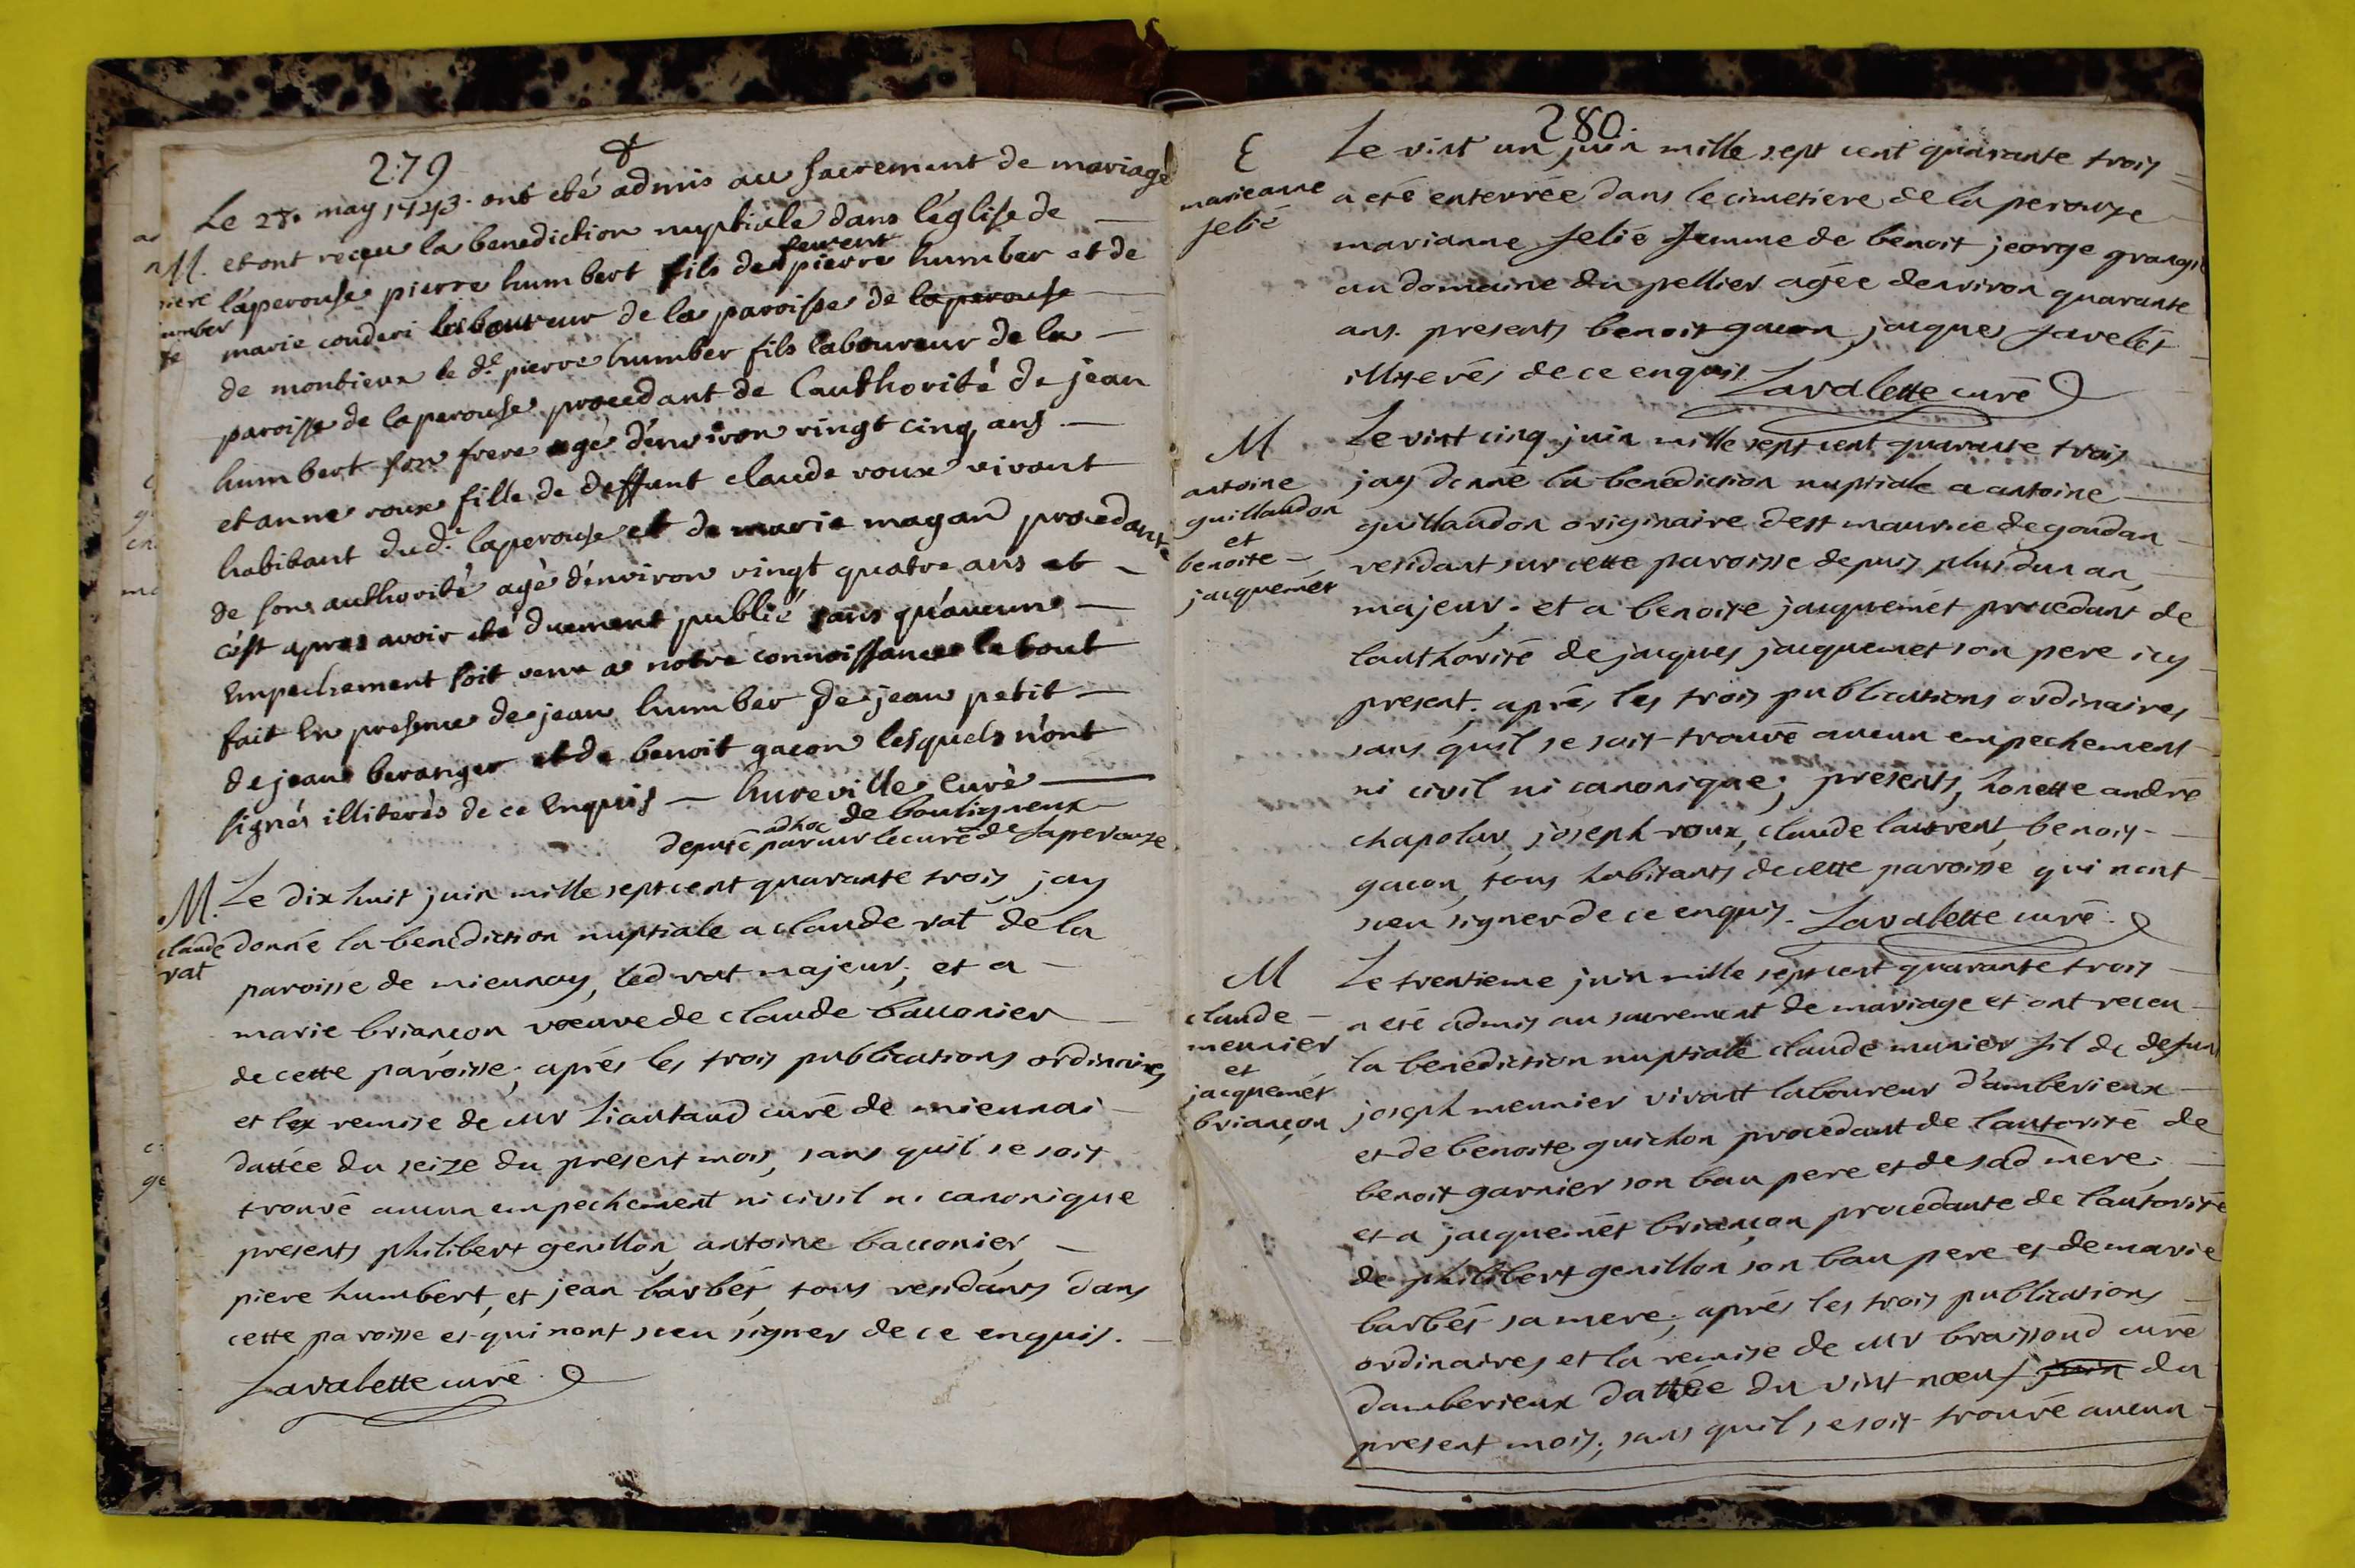 279
Le 28. may 1743. ont eté admis au sacrement de mariage
M. et ont reçeu la benediction nuptiale dans l'église de
laperouse pierre humbert fils de feu pierre humber et de
marie conderi laboureur de la paroisse de laperouse
de montieux le d.t pierre humber fils laboureur de la
paroisse de laperouse procedant de l'authorité de jean
humbert son frere agé d'environ vingt cinq ans
et anne roux fille de deffunt claude roux vivant
habitant dud.t laperouse et de marie magan procedante
de son authorité agé d'environ vingt quatre ans et
c'est apres avoir eté duement publié sans qu'aucune
Empechement soit venu a notre connoissance le tout
fait En presence de jean humber de jean petit
de jean beranger et de benoit gacon lesquels n'ont
signés illiterés de ce Enquis hureville curé
de bouligneux
deputé ad hoc par mr le curé de laperouze
M. Le dix huit juin mille sept cent quarante trois jay
claude donné la benediction nuptiale a claude rat de la
rat
paroisse de miennay, led rat majeur; et a
marie briancon vœuve de claude bauonier
de cette paroisse; aprés les trois publications ordinaires
et lex remise de mr Liautaud curé de miennai
dattée du seize du present mois, sans quil se soit
trouvé aucun empechement ni civil ni canonique
presents philibert genillon, antoine bauonier,
piere humbert, et jean barbét, tous residants dans
cette paroisse et qui nont sceu signer de ce enquis.
Lavalette curé
280
E
marieanne
felié
Le vint un juin mille sept cent quarante trois
a eté enterrée dans le cimetiere de la perouze
marianne felié femme de benoit jeorge granger
au domaine du pellier agée denviron quarante
ans. presents benoit gacon, jacques favelét
illiterés de ce enquis. Lavalette curé
M
antoine
guillaudon
et
benoite
jacquemét
Le vint cinq juin mille sept cent quarante trois
jay donné la benediction nuptiale a antoine
guillaudon originaire dest maurice de goudan
residant sur cette paroisse depuis plus dun an,
majeur; et a benoite jacquemét procedant de
lauthorité de jacques jacquemet son pere icy
present. aprés les trois publications ordinaires
sans quil se soit trouvé aucun empechement
ni civil ni canonique; presents, honette andré
chapolar, joseph roux, claude laurent, benoit
gacon, tous habitants de cette paroisse qui nont
sceu signer de ce enquis. Lavalette curé.
M
claude
meunier
et
jacquemét
briançon
Le trentieme juin mille sept cent quarante trois
a eté admis au sacrement de mariage et ont receu
la benediction nuptiale claude munier fil de defunt
joseph meunier vivant laboureur d'amberieux
et de benoite guichon procedant de lautorité de
benoit garnier son bau pere et de sad mere;
et a jacquemét briançon procedante de lautorité
de philibert genillon son bau pere et de marie
barbét sa mere; aprés les trois publications
ordinaires et la remise de mr braissoud curé
damberieux dattée du vint nœuf juin du
present mois; sans quil se soit trouvé aucun